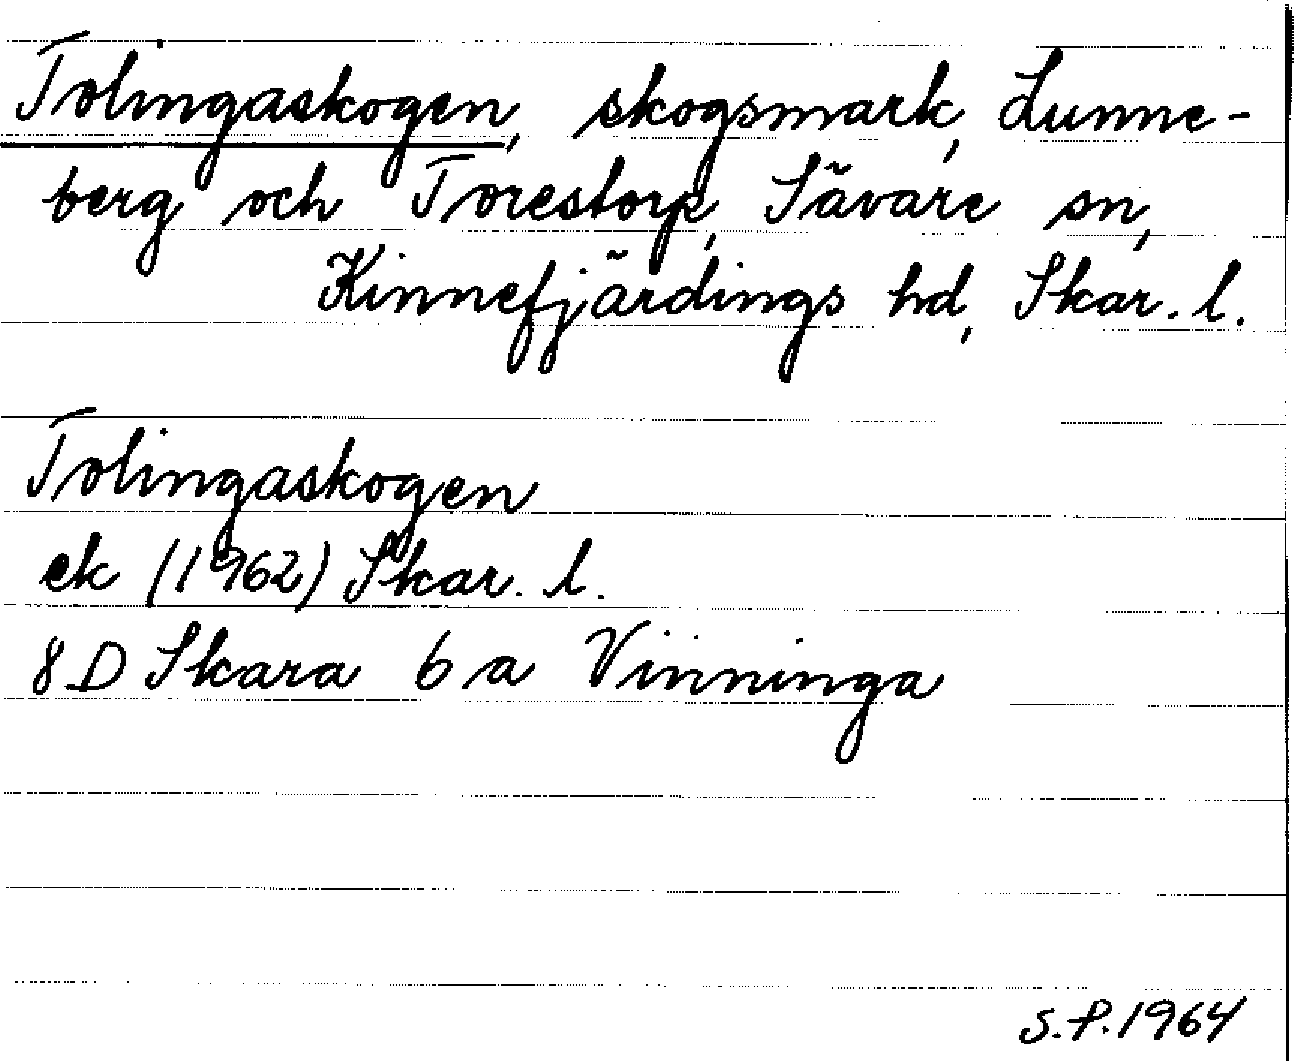 Tolingaskogen, skogsmark, Lunne-
berg och Torestorp, Sävare sn,
Kinnefjärdings hd, Skar. l.
Tolingaskogen
ek (1962) Skar. l.
8 D Skara 6 a Vinninga
S.P. 1964